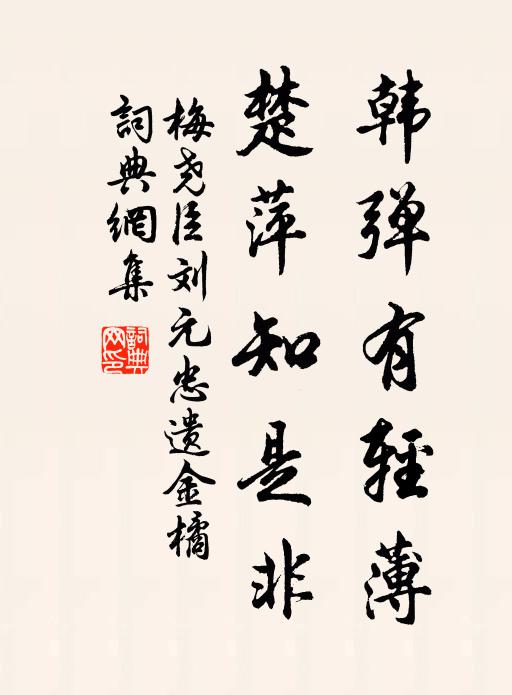 韩弹有輕薄
楚萍知是非
梅尧臣刘元忠遗金橘
詞典網集
詞典网印